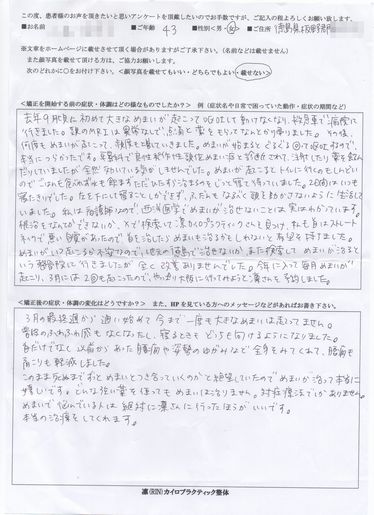 この度、患者様のお声を頂きたいと思いアンケートを頂戴したいのでお手数ですが、ご記入の程よろしくお願い致します。
■お名前 ■ご年齢 43 ■性別（男・女） ■ご住所 徳島県板野郡
※文章をホームページに載せさせて頂く場合がありますがご了承下さい。（名前などは載せません）
また顔写真を載せて頂ける方は、ご協力お願いします。
次のどれかに○をお付け下さい。＜顔写真を載せてもいい・どちらでもよい・載せない＞
＜矯正を開始する前の症状・体調はどの様なものでしたか？ 例（症状名や日常で困っていた動作・症状の期間など）
去年9月、初めて大きなめまいが起こって動けなくなり、救急車で病院に
行きました。頭のMRIは異常なしで、点滴と薬をもらってなんとか帰りました。その後、
何度もめまいが起こって、
本当につらかったです。耳鼻科で良性発作性頭位めまい症と診断されて、注射したり薬を飲ん
だりしていましたが全然
めまいが起こるとトイレに行くのもしんどい
寝たきりでした。左を下にして寝ることができず、ふだんもなるべく頭を動かさないように生活し
ていました。私は看護師なので、西洋医学でめまいが治せないことは実はわかっています。
根治をなんでできないか、と探してカイロプラクティックさんを見つけ、私も首はストレート
ネックで悪い自覚があったので首を治したらめまいも治るかもしれないと希望を持てました。
めまいがいつ起こるか不安なので、
という整骨院に行きましたが全く改善ありませんでした。今年に入って毎月めまいが
起こり、3月には2回も起こったので、やっぱり大阪に行ってみようと凛さんを予約しました。
＜矯正後の症状・体調の変化はどうですか？ また、HPを見ている方へのメッセージなどがあればお書き下さい。
3月の最終週から通い始めて今まで一度も大きなめまいは起こってません。
普段のふわふわ感もなくなったし、寝るときもどっちも向けるようになりました。
首だけでなく以前からあった腰痛や姿勢のゆがみなど全身をみてくれて、腰痛も
肩こりも軽減しました。
このまま死ぬまでずっとめまいとつき合っていくのかと絶望していたのでめまいが治って本当に
嬉しいです。どんな強い薬を使ってもめまいは治りません。対症療法でしかありません。
めまいで悩んでいる人は絶対に凛さんに行ったほうがいいです。
本当の治療をしてくれます。
凛(RIN)カイロプラクティック整体